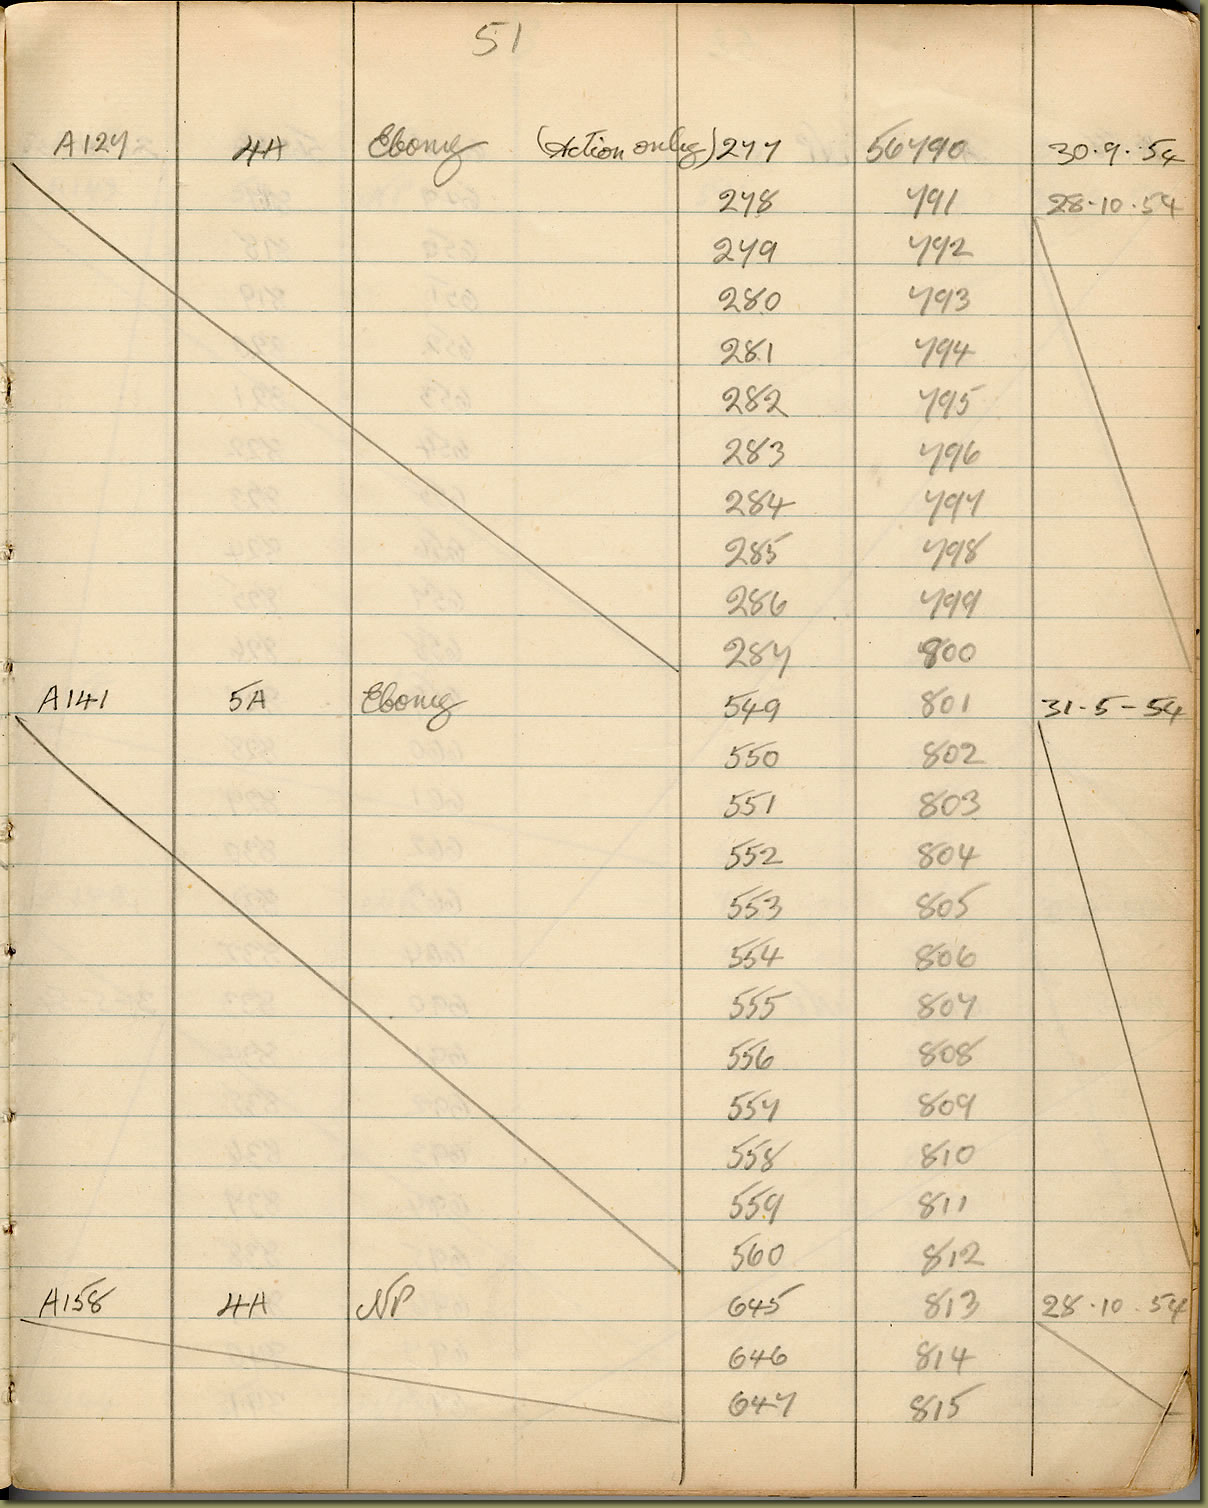 51
A127 4A Ebony (Action only) 277 56790 30.9.54
278 791 28.10.54
279 792
280 793
281 794
282 795
283 796
284 797
285 798
286 799
287 800
A141 5A Ebony 549 801 31-5-54
550 802
551 803
552 804
553 805
554 806
555 807
556 808
557 809
558 810
559 811
560 812
A158 4A NP 645 813 28.10.54
646 814
647 815